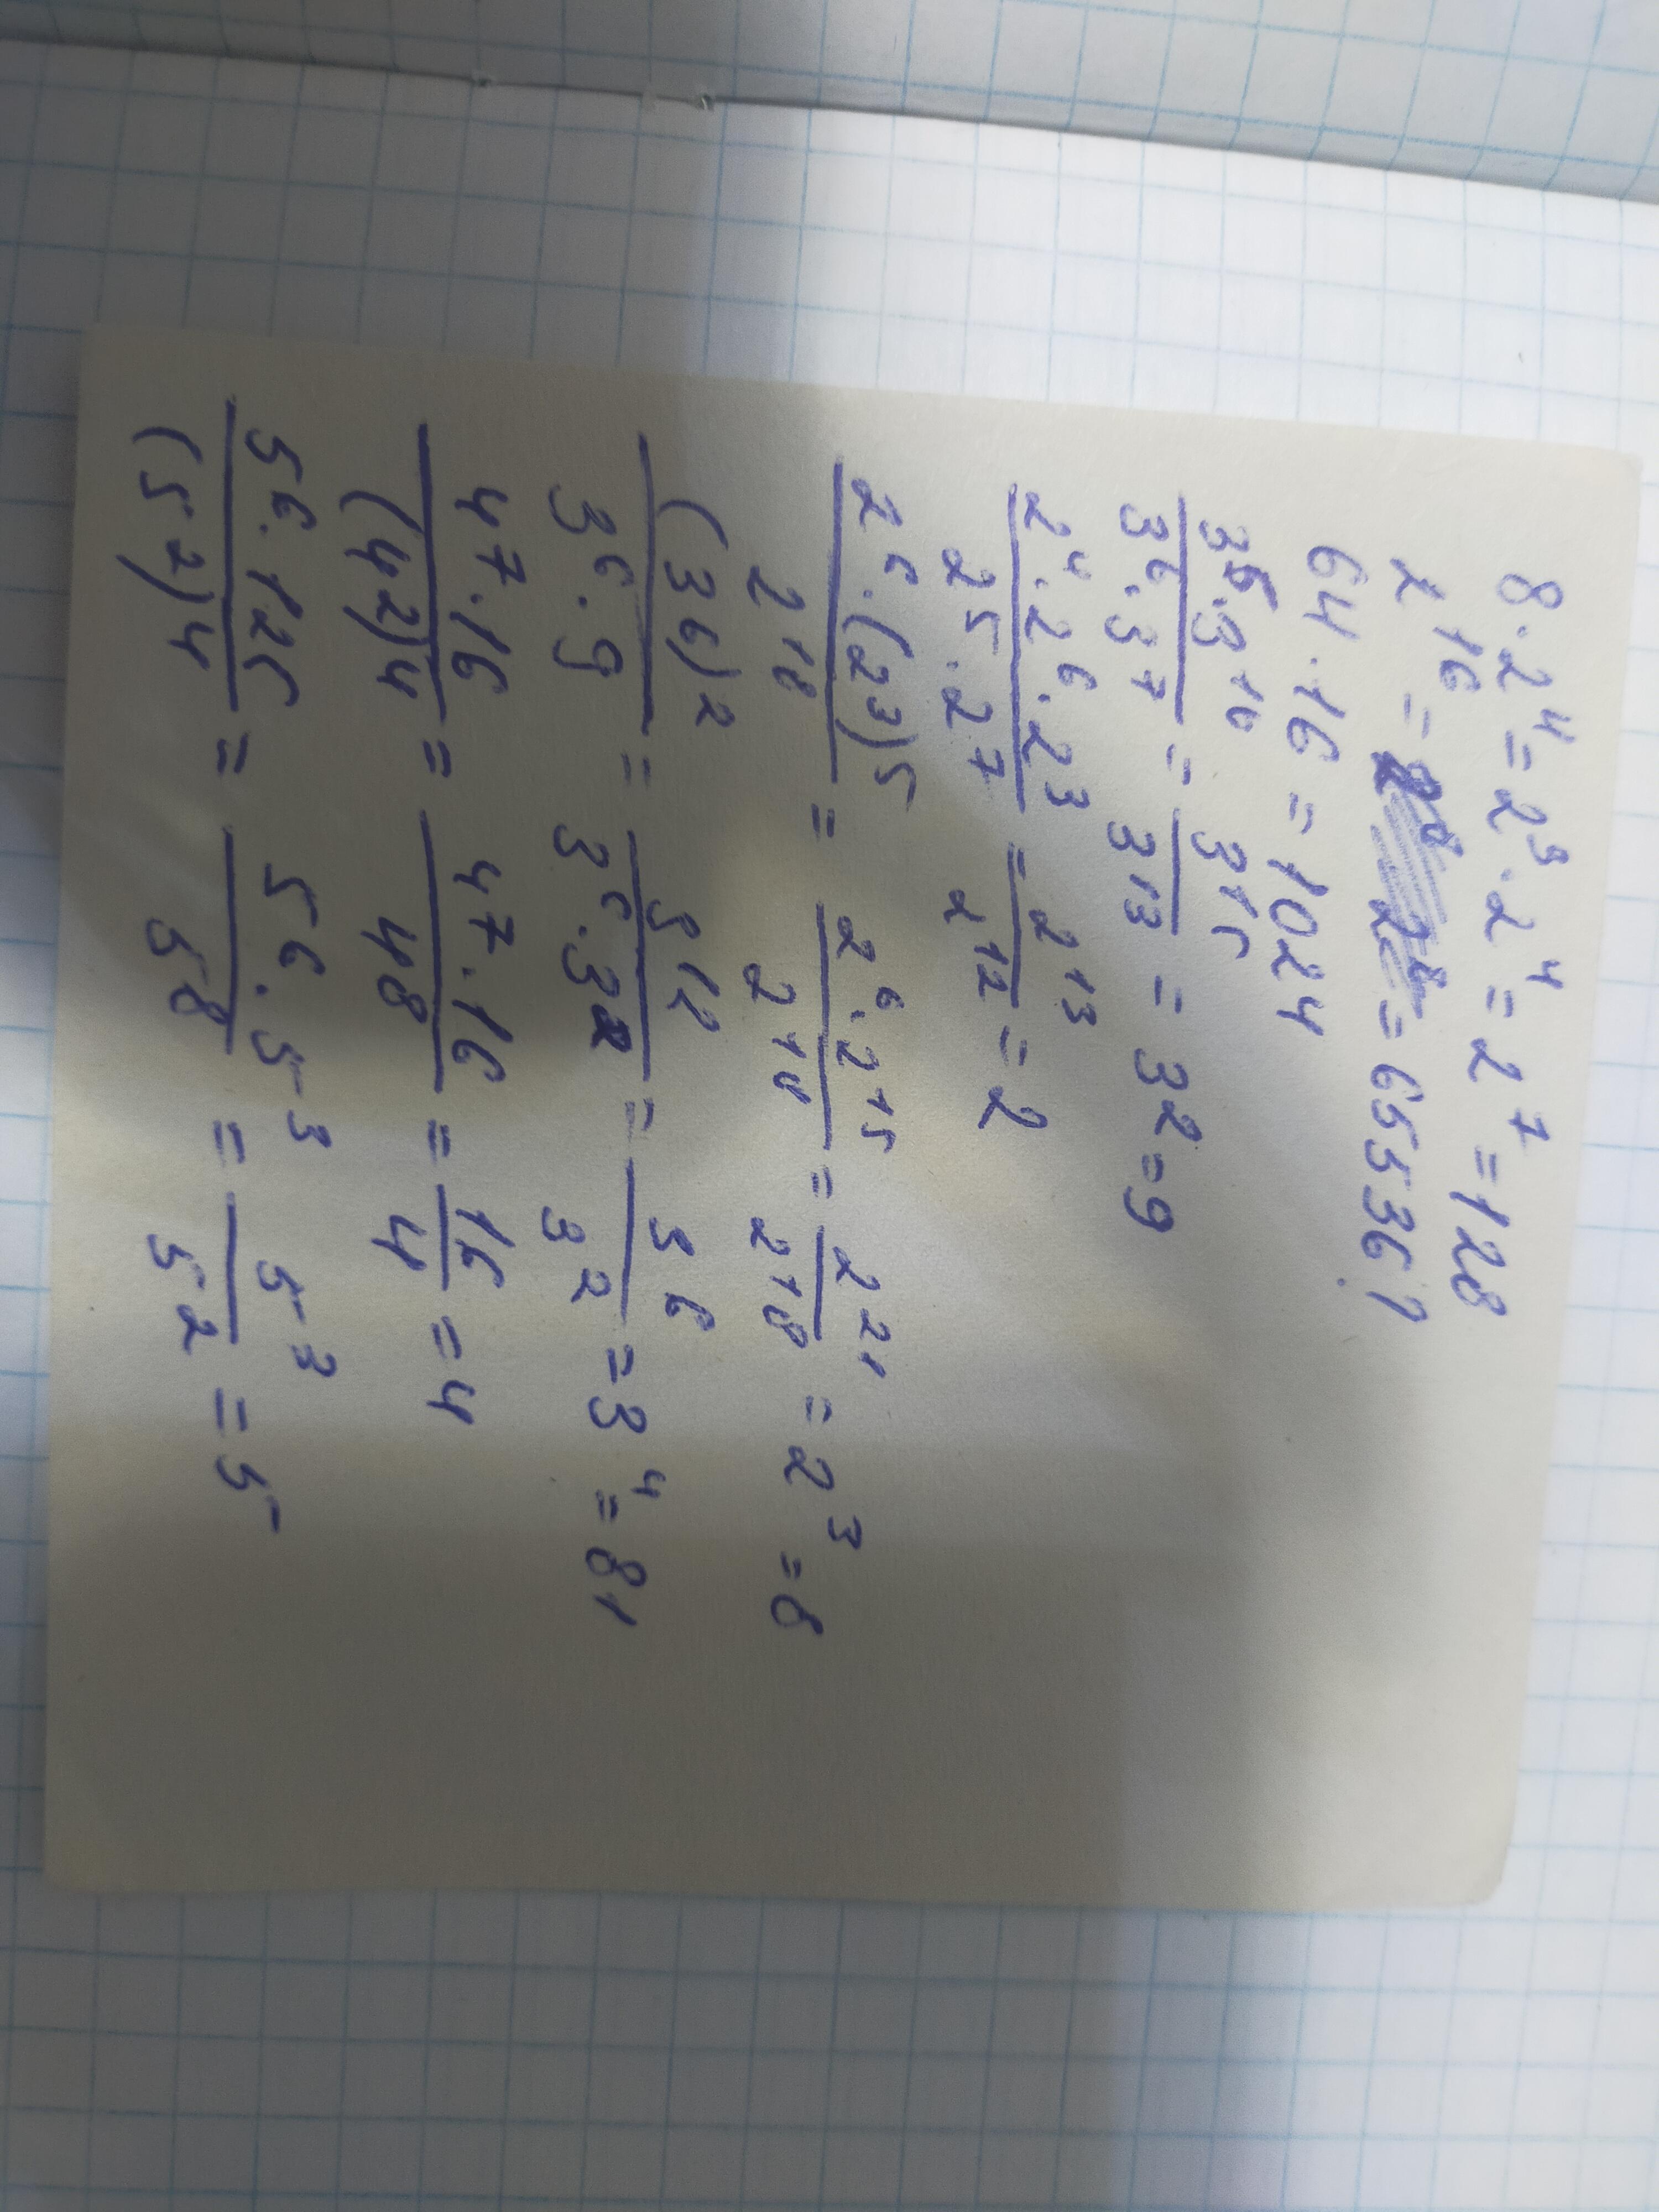 8 · 2⁴ = 2³ · 2⁴ = 2⁷ = 128
2¹⁶ = = 65536?
64 · 16 = 1024
3⁵·3¹⁰ / 3⁶·3⁷ = 3¹⁵ / 3¹³ = 3² = 9
2⁴·2⁶·2³ / 2⁵·2⁷ = 2¹³ / 2¹² = 2
2⁶·(2³)⁵ / 2¹⁸ = 2⁶·2¹⁵ / 2¹⁸ = 2²¹ / 2¹⁸ = 2³ = 8
(3⁶)² / 3⁶·9 = 3¹² / 3⁶·3² = 3⁶ / 3² = 3⁴ = 81
4⁷·16 / (4²)⁴ = 4⁷·16 / 4⁸ = 16 / 4 = 4
5⁶·125 / (5²)⁴ = 5⁶·5³ / 5⁸ = 5³ / 5² = 5